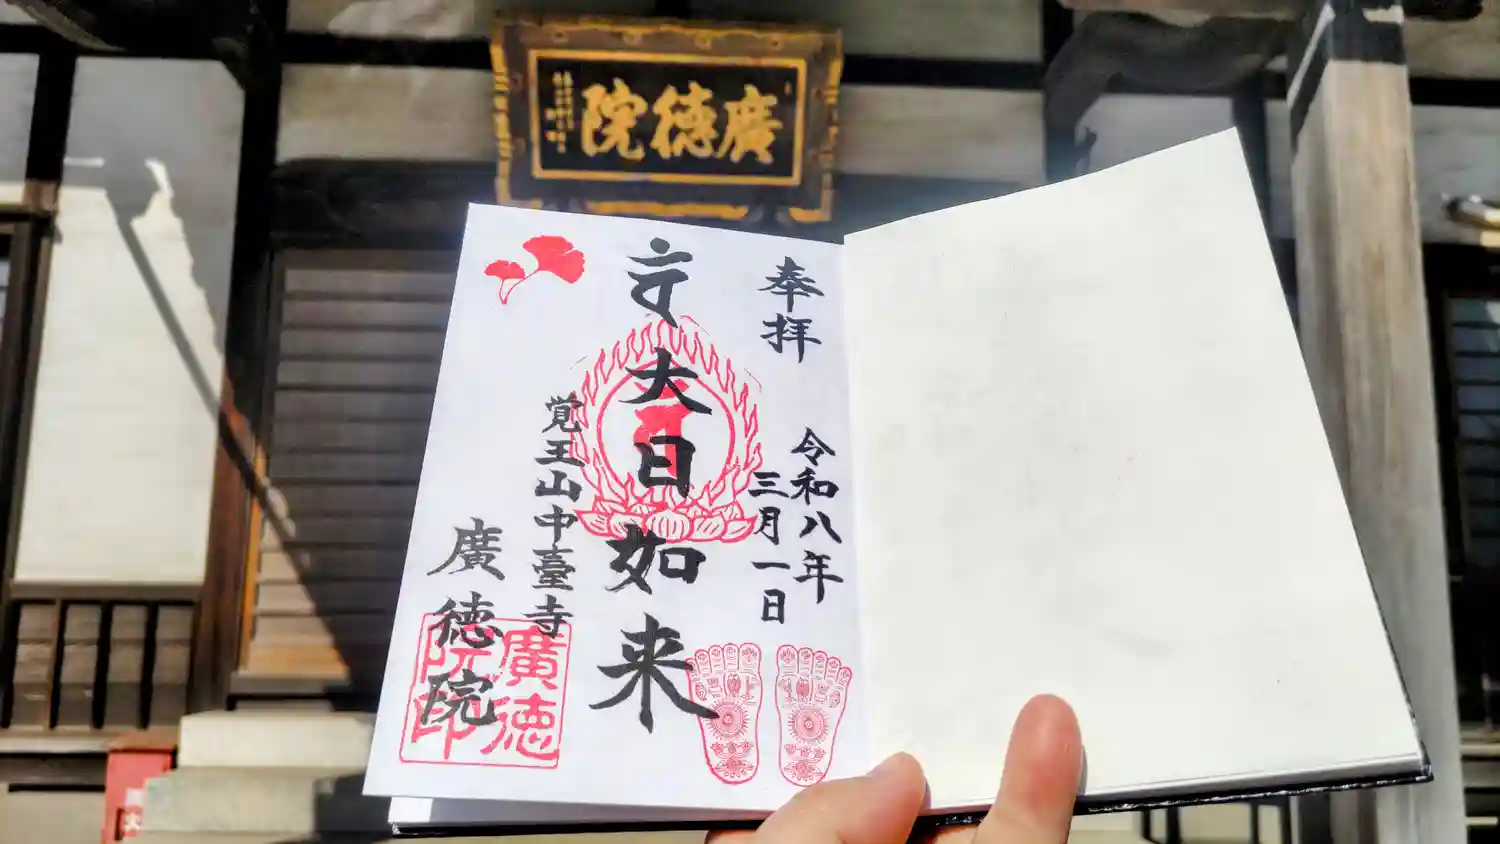 廣徳院
奉拝
令和八年
三月一日
大日如来
覚王山中臺寺
廣徳院
廣徳
院印
火